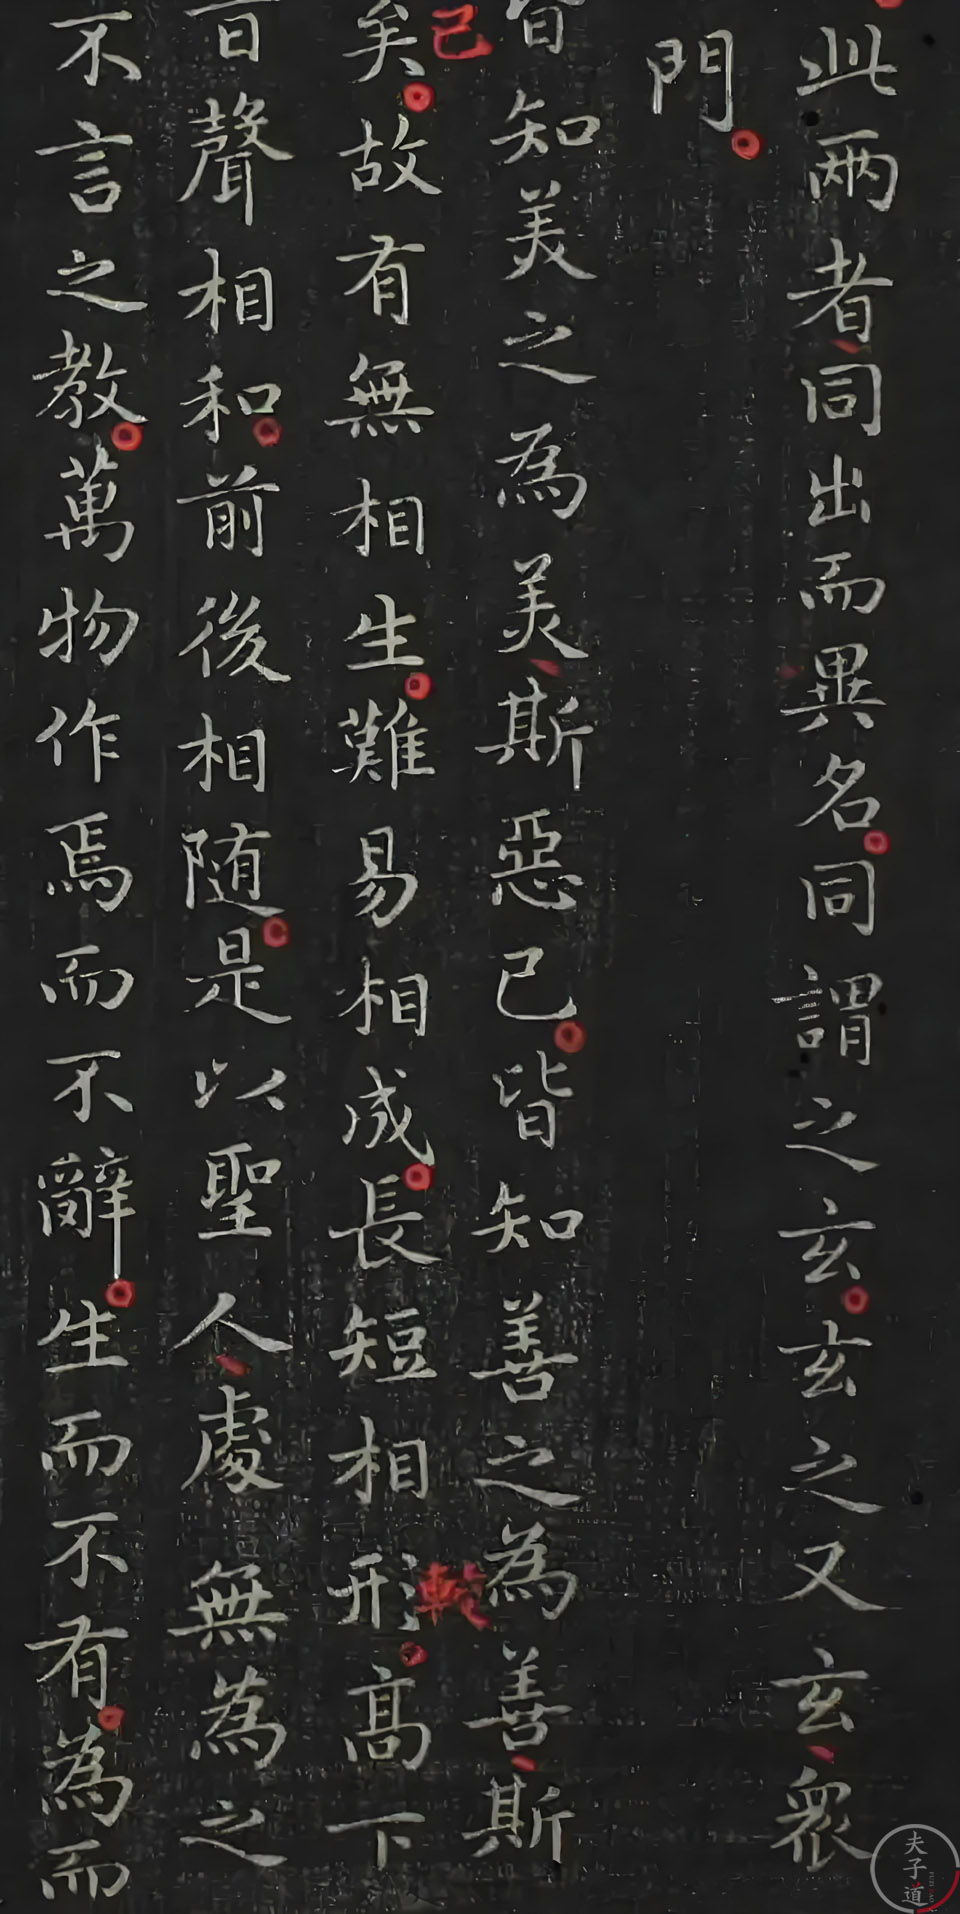 此兩者同出而異名同謂之玄玄之又玄衆
門
皆知美之為美斯惡已皆知善之為善斯
已
較
矣故有無相生難易相成長短相形高下
音聲相和前後相随是以聖人處無為之
不言之教萬物作焉而不辭生而不有為而
夫子道